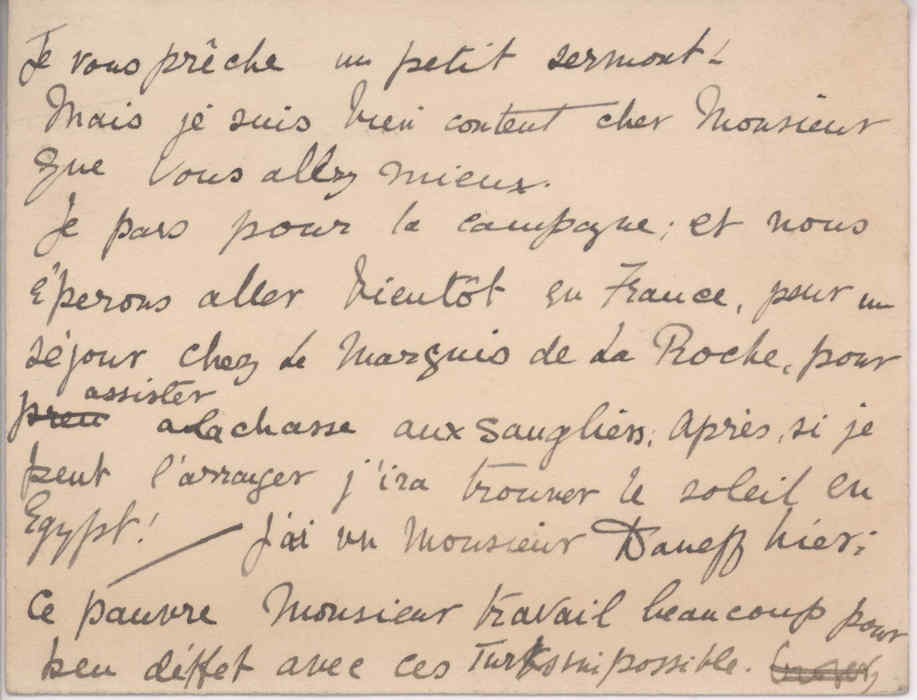 Je vous prêche un petit sermont!
Mais je suis bien content cher Monsieur
que vous allez mieux.
Je pars pour la campagne; et nous
éperons aller bientôt en France, pour un
séjour chez le Marquis de La Roche, pour
assister
a la chasse aux saugliers. Après, si je
peut l'arranger j'ira trouver le soleil en
Egypt!
J'ai vu Monsieur Daneff hier;
Ce pauvre Monsieur travail beaucoup pour
peu d'éffet avec ces Turks impossible.